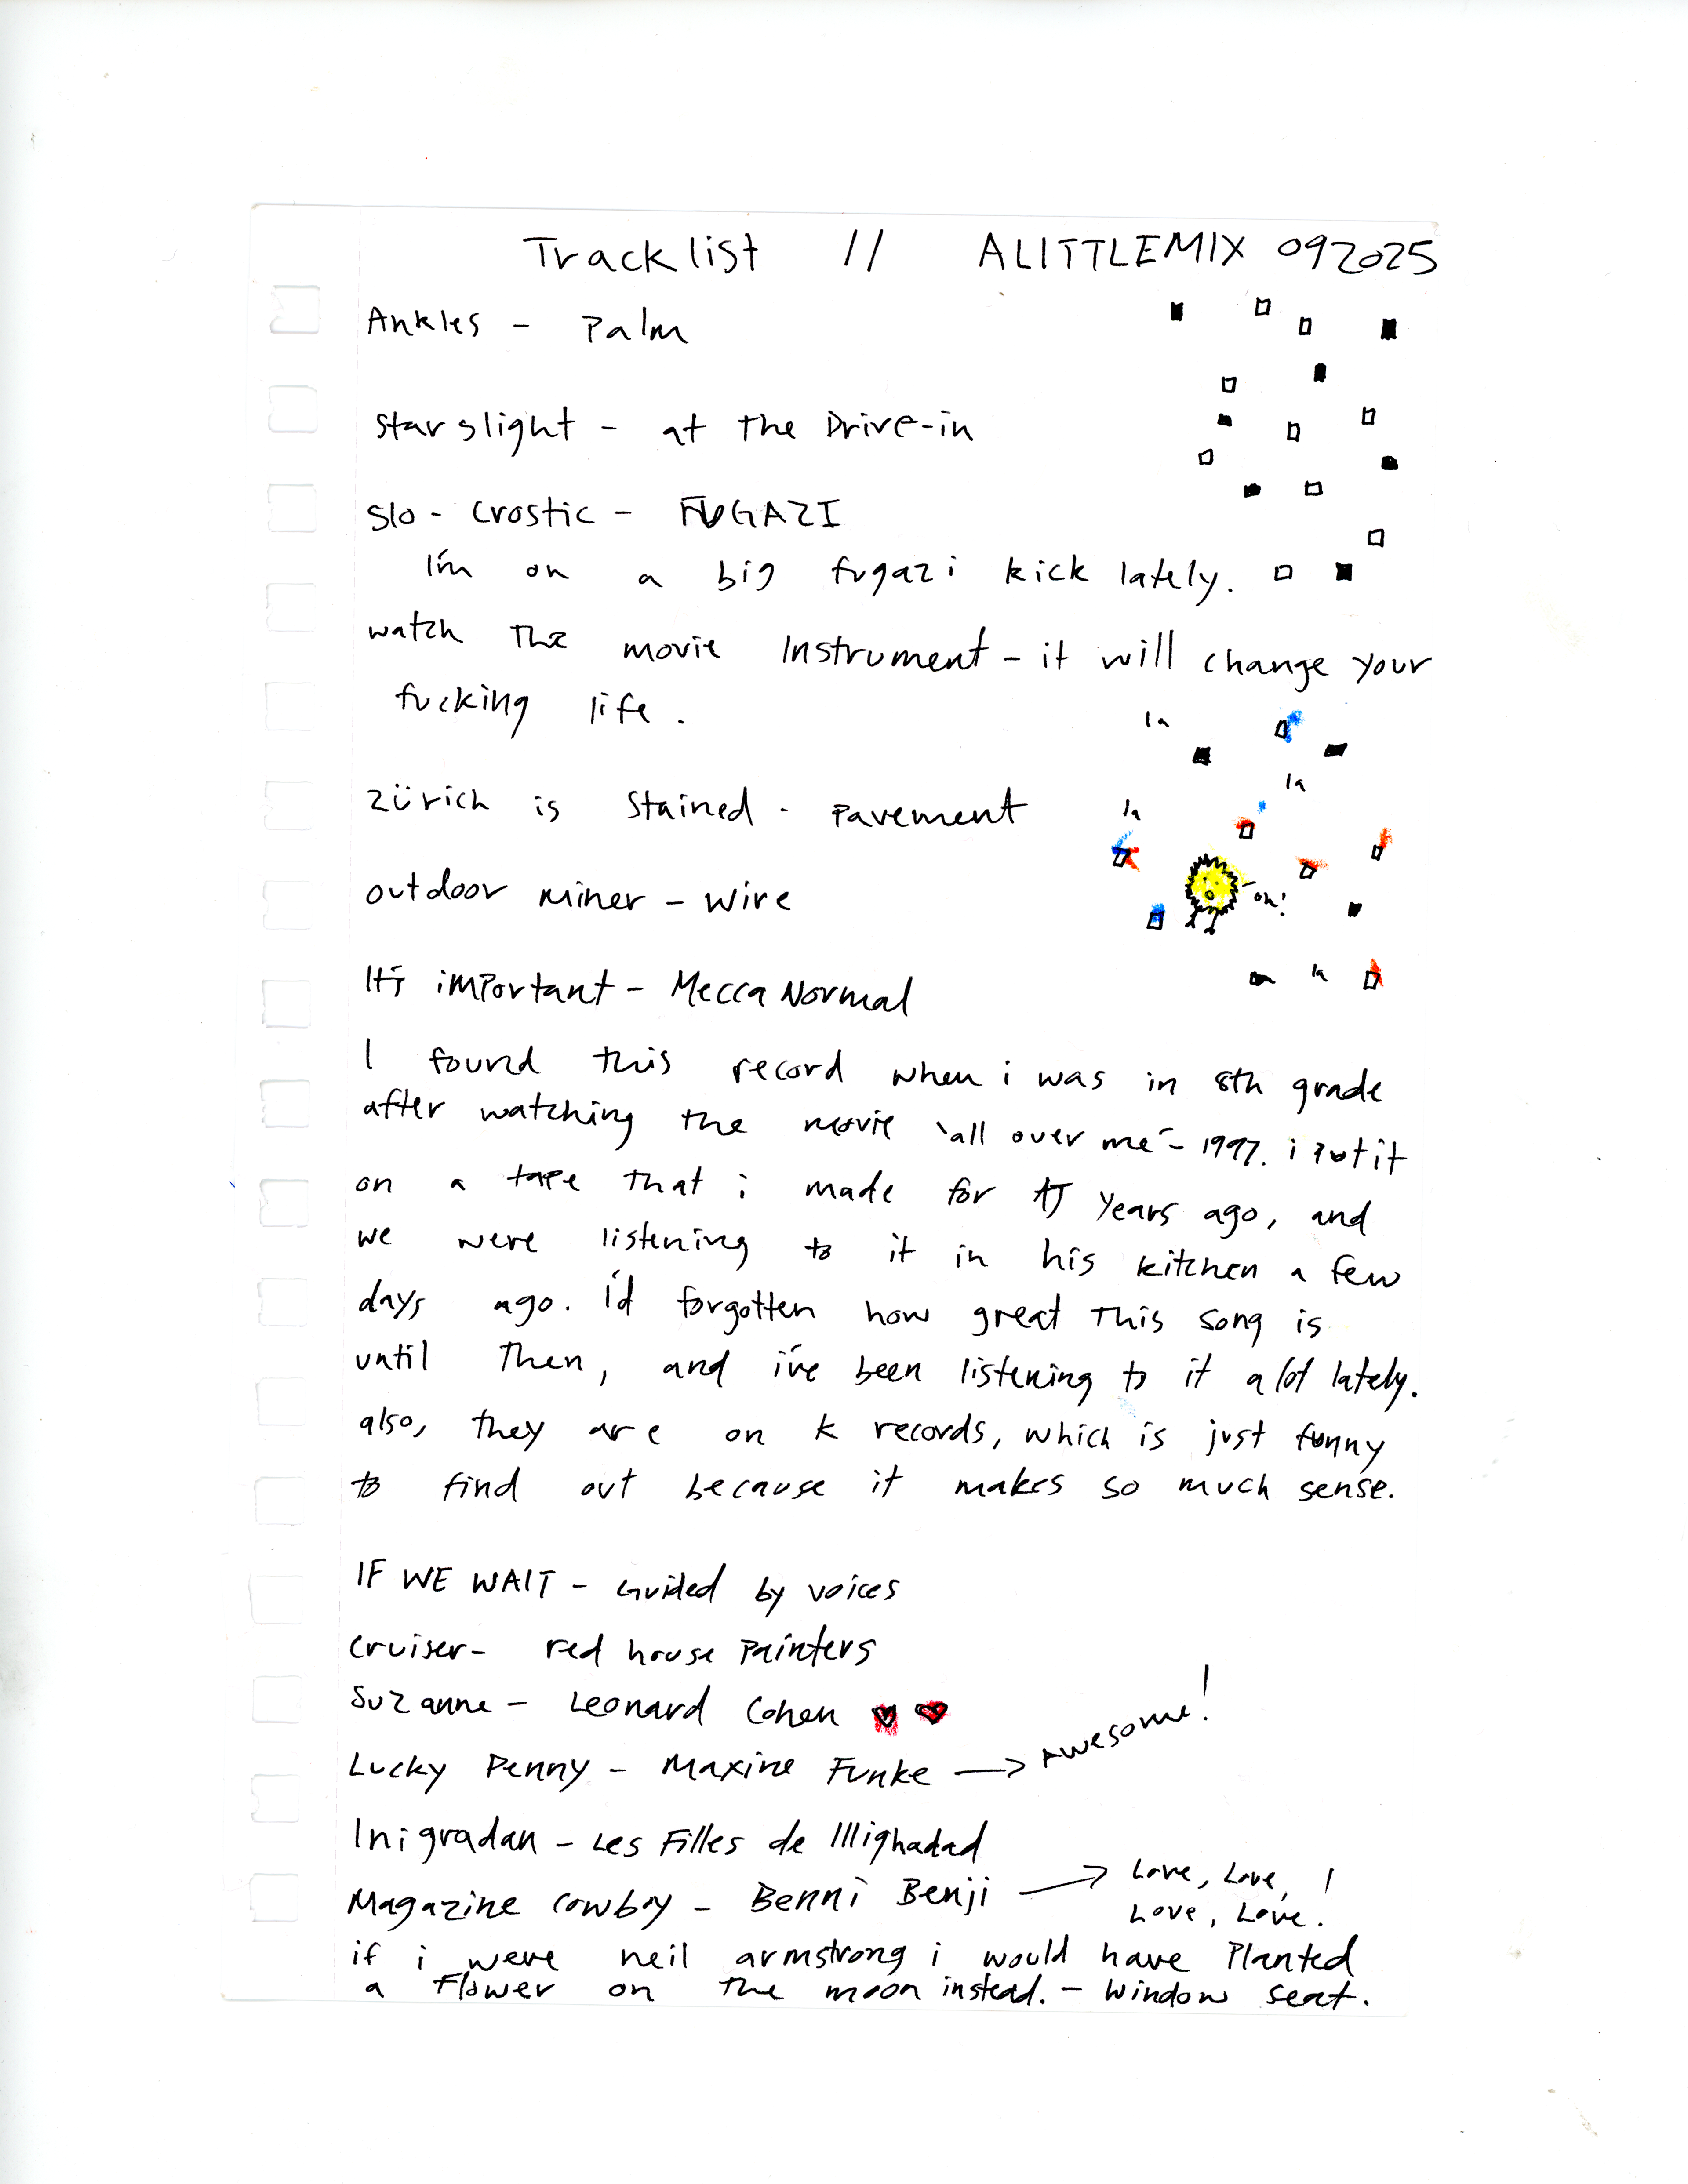 Tracklist // ALITTLEMIX 092025
Ankles - Palm
Starslight - at the Drive-in
Slo-Crostic - FUGAZI
I'm on a big fugazi kick lately.
watch the movie Instrument - it will change your
fucking life.
la
la
Zürich is Stained - Pavement
la
outdoor miner - Wire
oh!
la
It's important - Mecca Normal
I found this record when i was in 8th grade
after watching the movie 'all over me' - 1997. i put it
on a tape that i made for AJ years ago, and
we were listening to it in his kitchen a few
days ago. i'd forgotten how great this song is
until then, and i've been listening to it a lot lately.
also, they are on k records, which is just funny
to find out because it makes so much sense.
IF WE WAIT - Guided by voices
Cruiser - red house painters
Suzanne - Leonard Cohen
Lucky Penny - Maxine Funke → Awesome!
Inigradan - Les Filles de Illighadad
Magazine Cowboy - Benni Benji → Love, Love,
Love, Love!
if i were neil armstrong i would have Planted
a Flower on the moon instead. - Window seat.